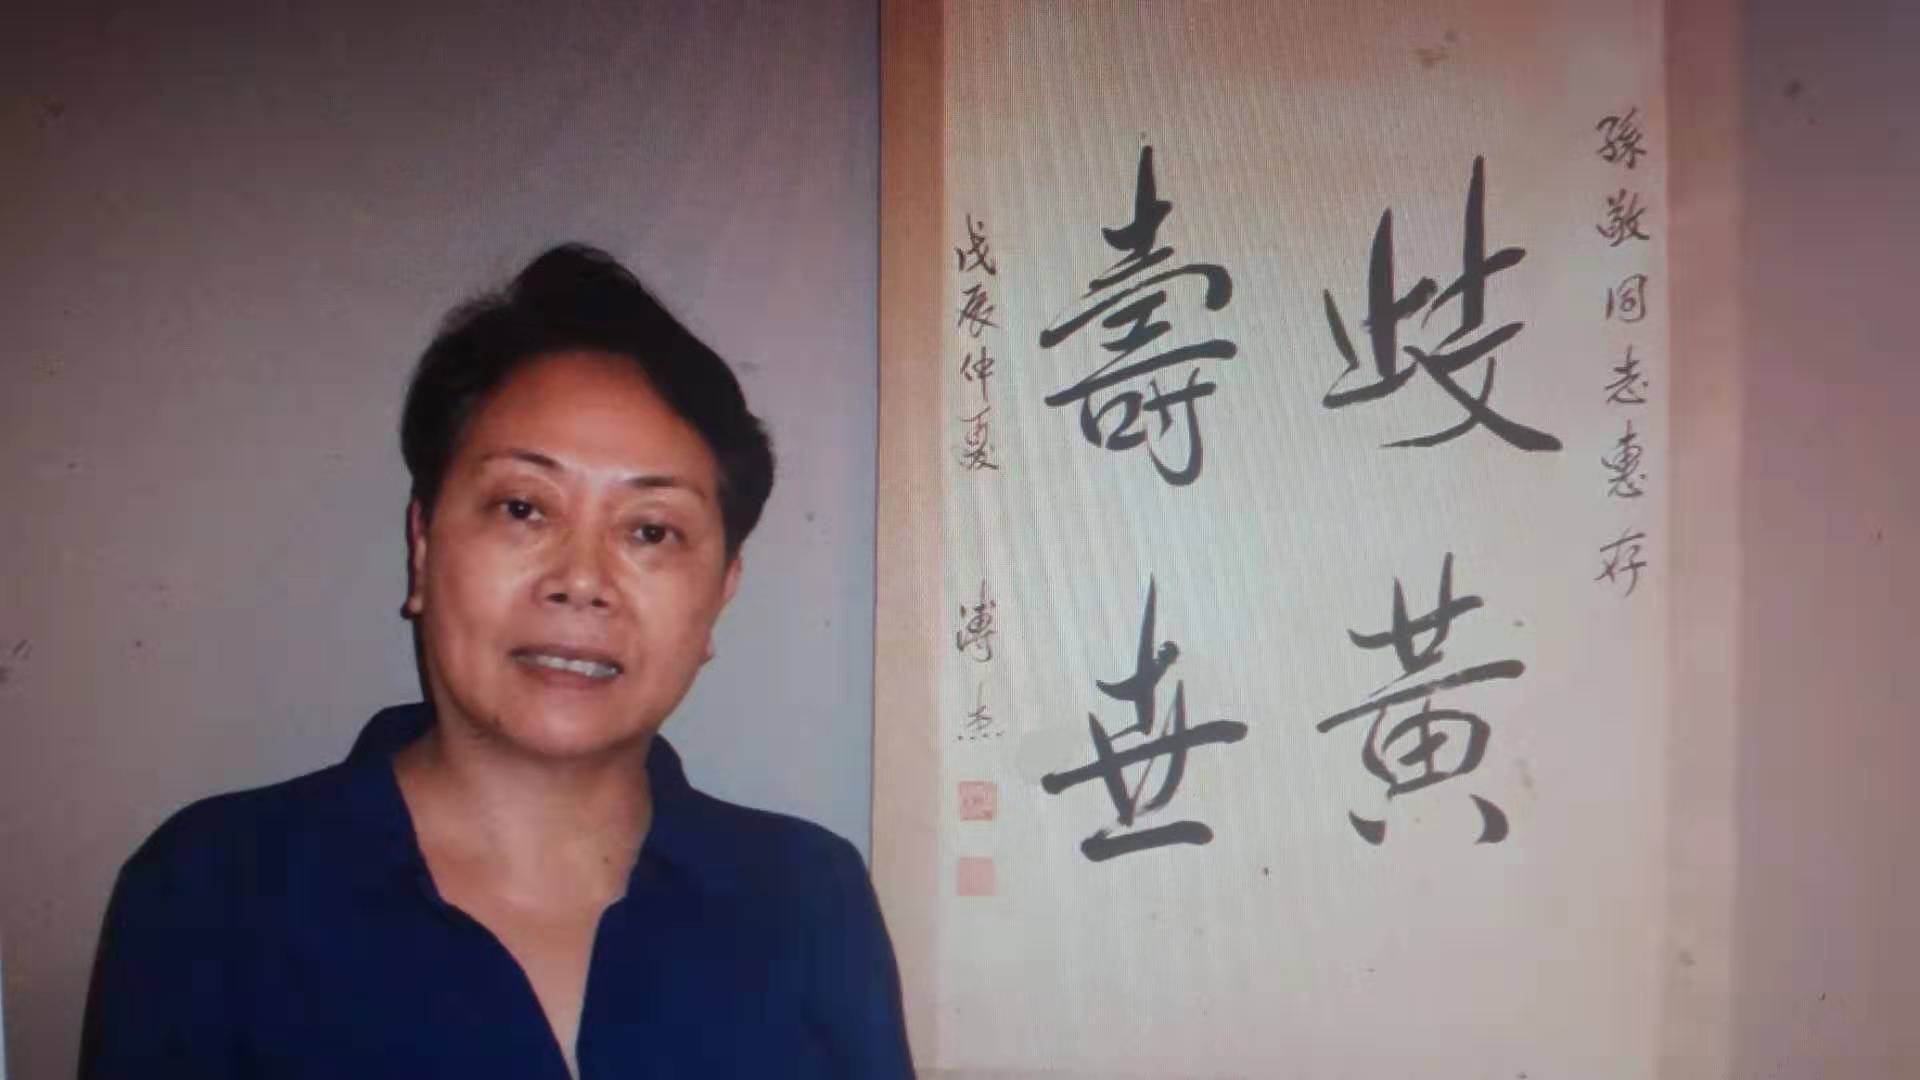 孫敬同志惠存
歧黃
壽世
戊辰仲夏 溥杰